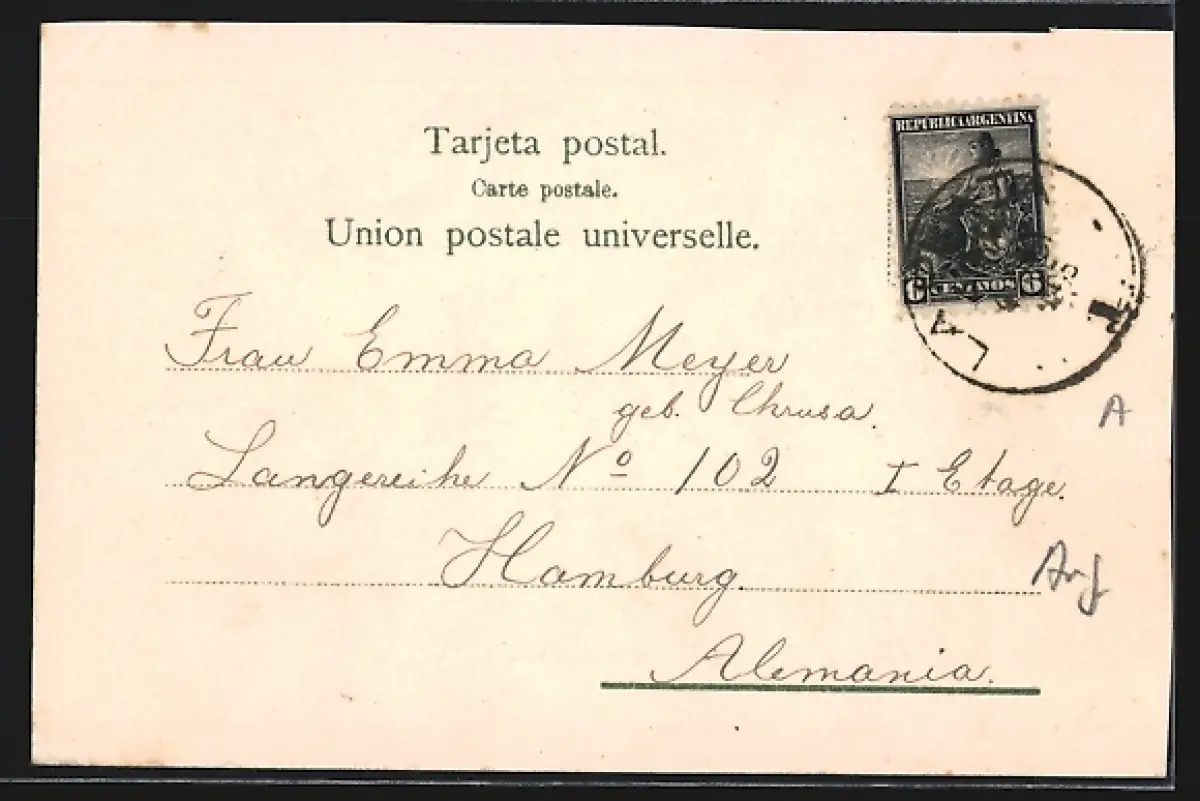 Tarjeta postal.
Carte postale.
Union postale universelle.
REPUBLICA ARGENTINA
6 CENTAVOS 6
LA
Frau Emma Meyer
geb. Chrusa.
Langereihe Nº 102 I Etage.
A
Hamburg.
Arg
Alemania.